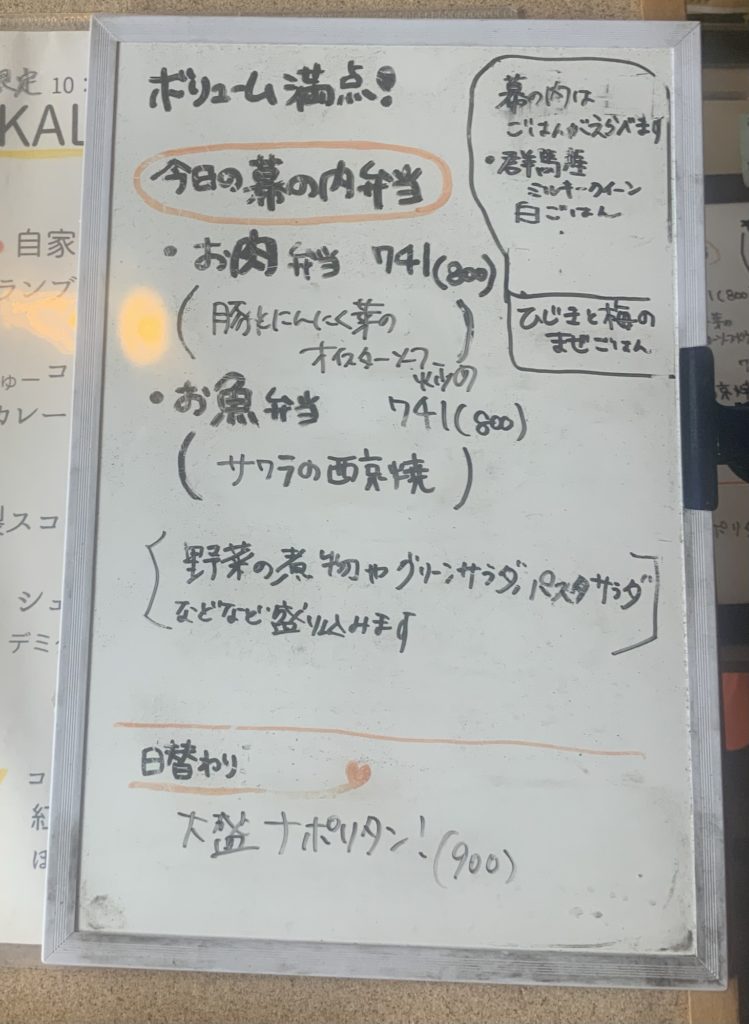 ボリューム満点!
今日の幕の内弁当
・お肉弁当 741(800)
(豚とにんにく葉の
オイスターソース
炒め)
・お魚弁当 741(800)
(サワラの西京焼)
野菜の煮物やグリーンサラダ、パスタサラダ
などなど盛り込みます
幕の内は
ごはんがえらべます
・群馬産
ミルキークイーン
白ごはん
ひじきと梅の
まぜごはん
日替わり
大盛ナポリタン!(900)
限定 10:
KAL
自家
ランブ
カレー
製スコ
デミ